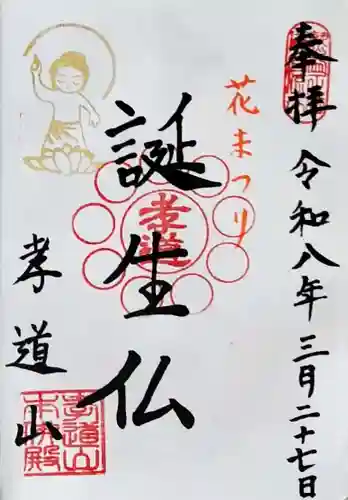 奉拝
令和八年三月二十七日
花まつり
誕生仏
孝道
孝道山
孝道山
本仏殿